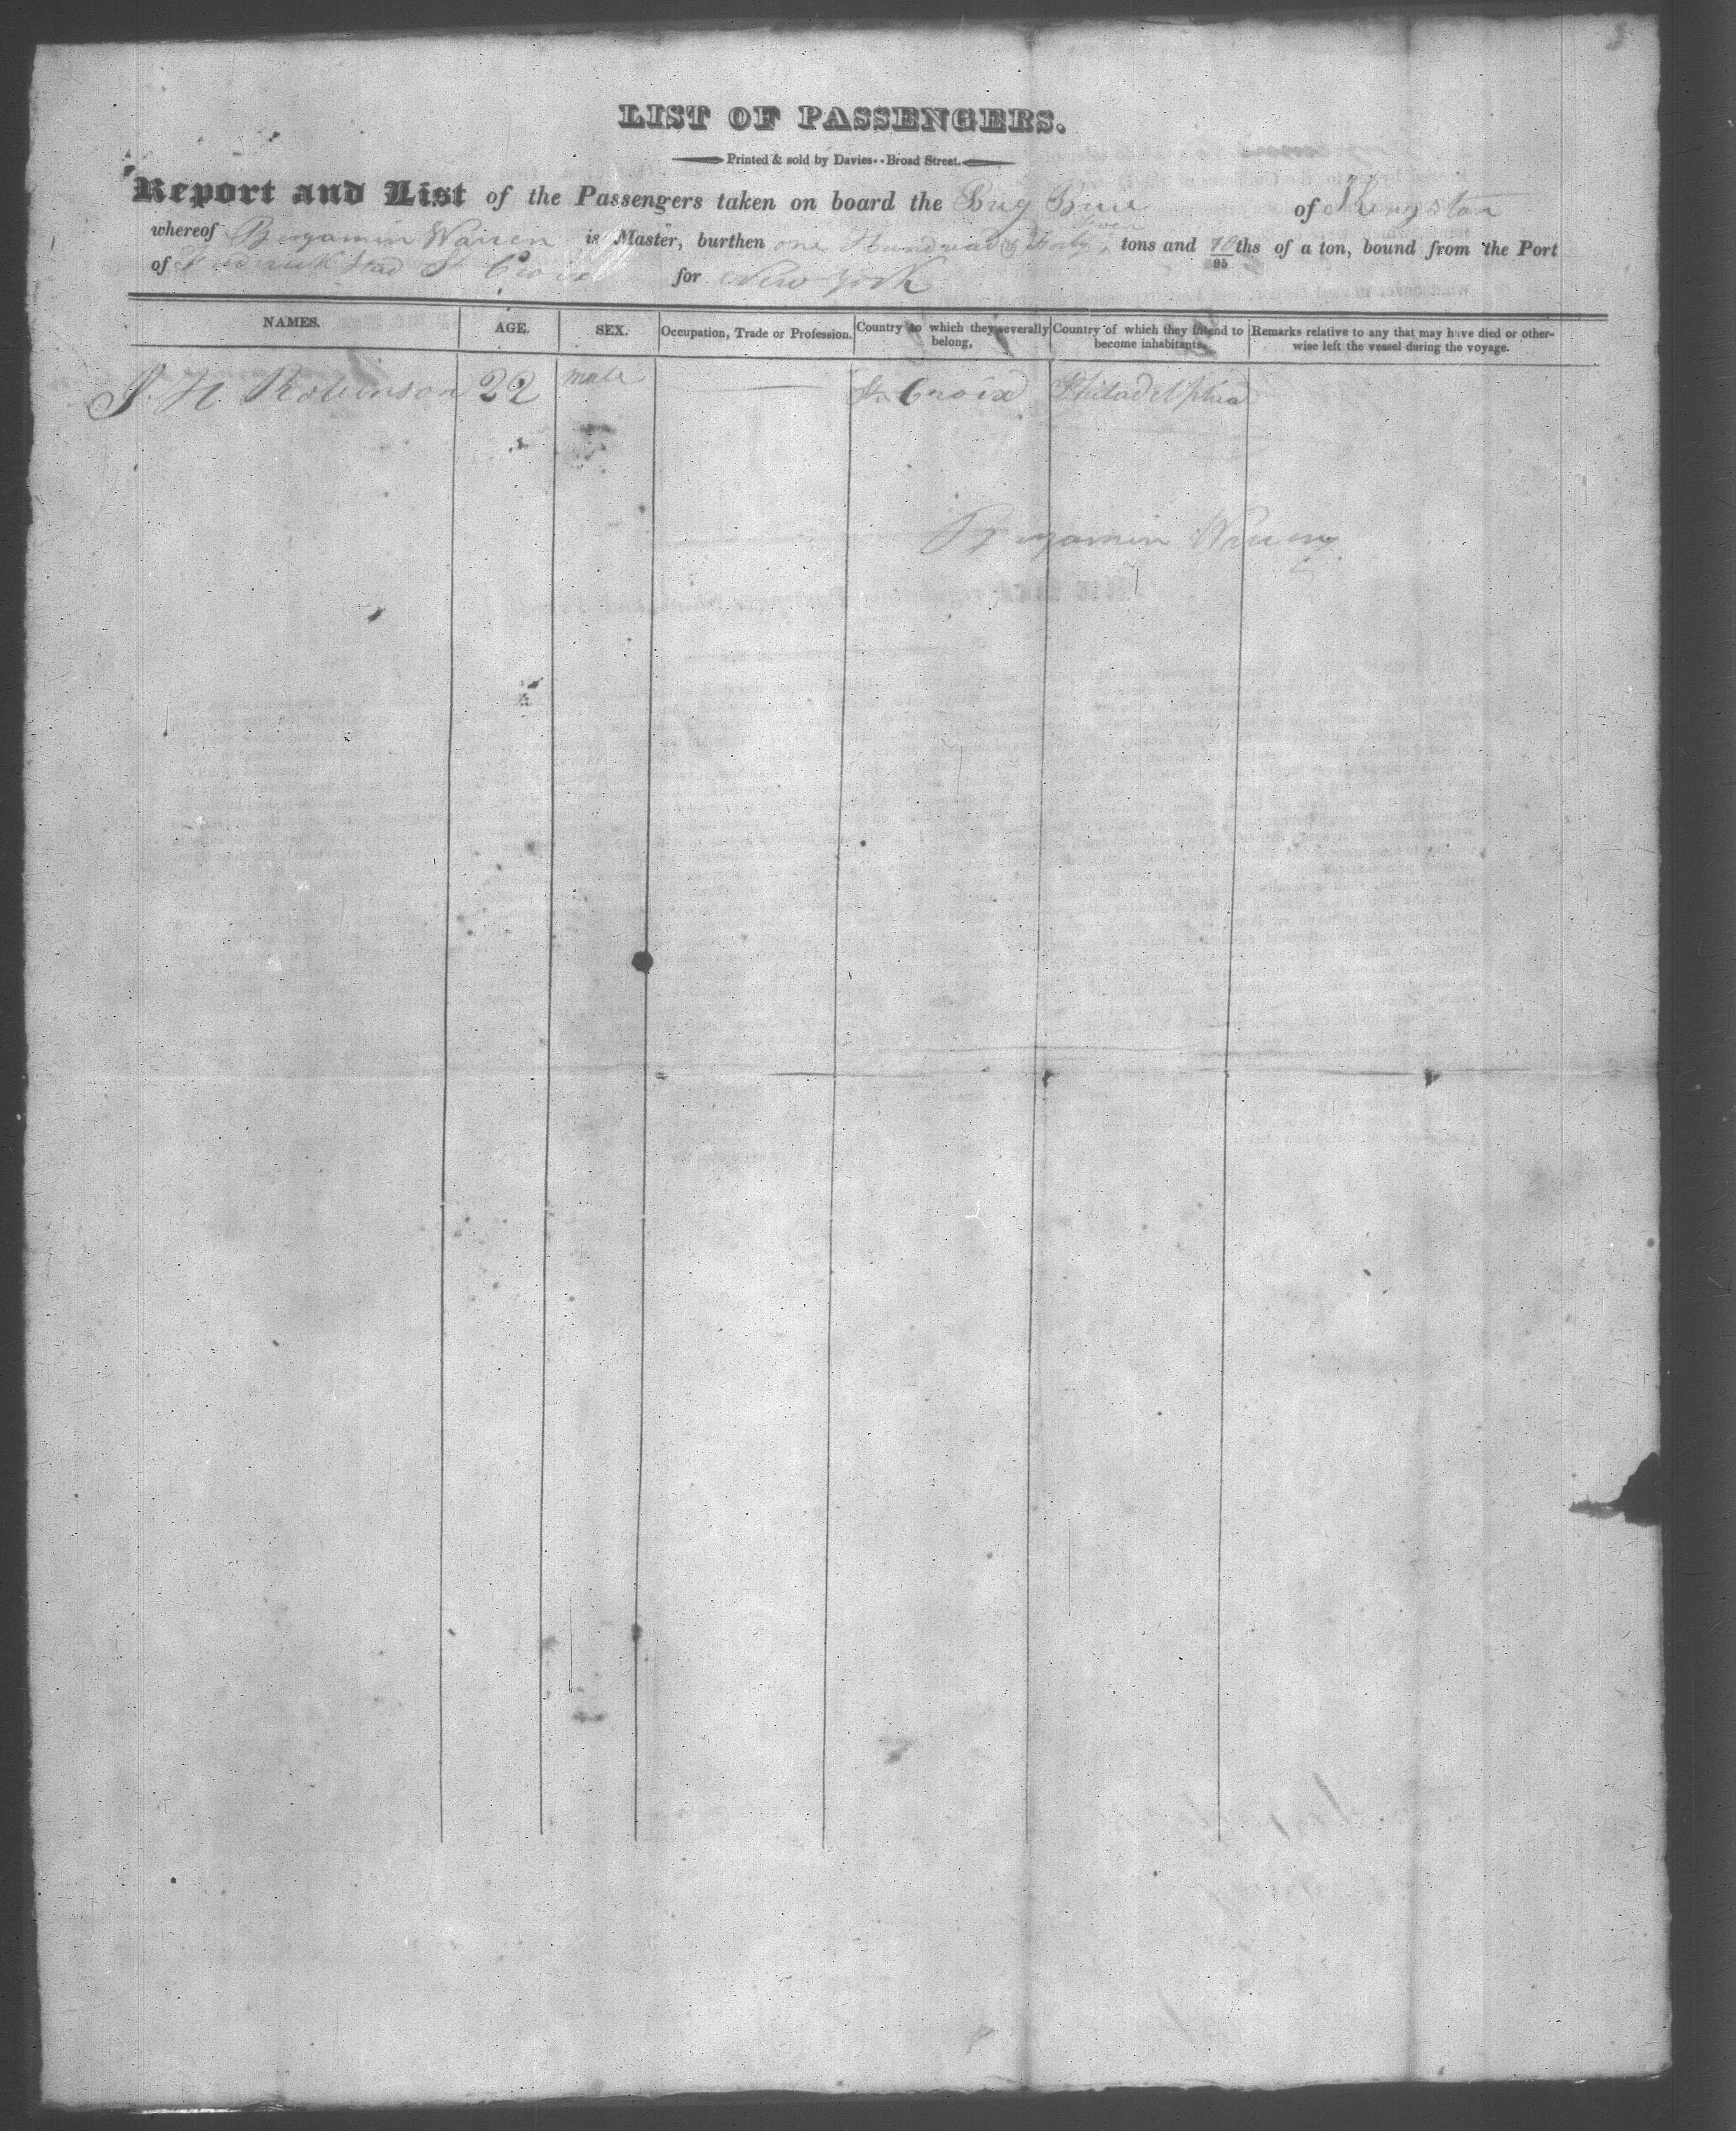 LIST OF PASSENGERS.
Printed & sold by Davies-- Broad Street.
Report and List of the Passengers taken on board the Brig of Kingston
whereof Benjamin Warren is Master, burthen one Hundread & Forty tons and 10/95ths of a ton, bound from the Port
of Frederick Stad St Croix for New York
NAMES. AGE. SEX. Occupation, Trade or Profession. Country to which they severally belong, Country of which they intend to become inhabitants. Remarks relative to any that may have died or otherwise left the vessel during the voyage.
J. H. Robinson 22 male — St Croix Philadelphia
Benjamin Warren